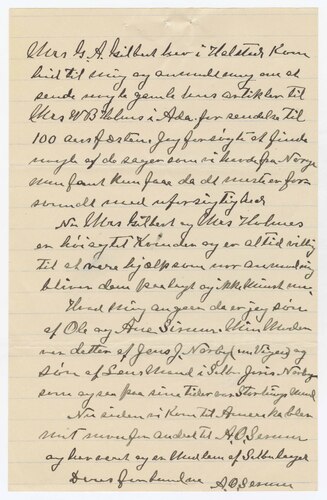 Mrs G. A. Gilbert her i Halstad Kom
hid til mig og anmodet mig om at
sende nogle gamle hus artikler til
Mrs W B Holmes i Ada for sendelse til
100 aars festen. Jeg forsøgte at finde
nogle af de sager som vi havde fra Norge
men fant kun faa da det meste er for
svundet med uforsigtighed
Nu Mrs Gilbert og Mrs Holmes
er høiagtet Kvinder og er altid villig
til at være hjælpsom nor anmodning
bliver dem paalagt og ikke mindst
Hvad mig angaar da er jeg søn
af Ole og Ane Min Moder
var datter af Jens J. Norby
søn af Lensmand i Selbu Jens Norby
som ogsaa paa sine tider var Stortings Mand
Nu siden vi Kom til Amerika blev
mit navn forandret til A O Serum
og har vært og er Medlem af Selbulaget
Deres forbundne
A O Serum